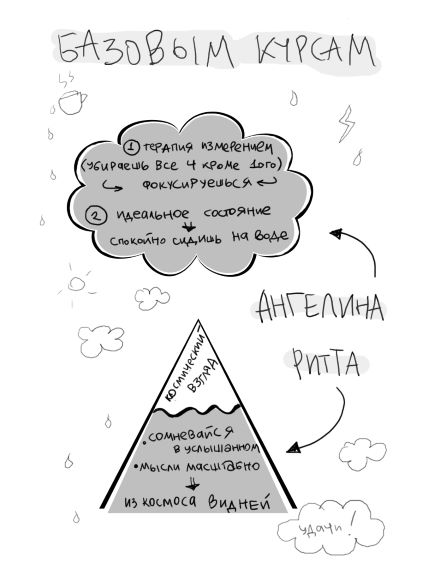 БАЗОВЫМ КУРСАМ
① ТЕРАПИЯ ИЗМЕРЕНИЕМ
(УБИРАЕШЬ ВСЕ 4 КРОМЕ 1ОГО)
ФОКУСИРУЕШЬСЯ
② ИДЕАЛЬНОЕ СОСТОЯНИЕ
СПОКОЙНО СИДИШЬ НА ВОДЕ
АНГЕЛИНА
РИТТА
КОСМИЧЕСКИЙ
ВЗГЛЯД
• СОМНЕВАЙСЯ
В УСЛЫШАННОМ
• МЫСЛИ МАСШТАБНО
ИЗ КОСМОСА ВИДНЕЙ
УДАЧИ!